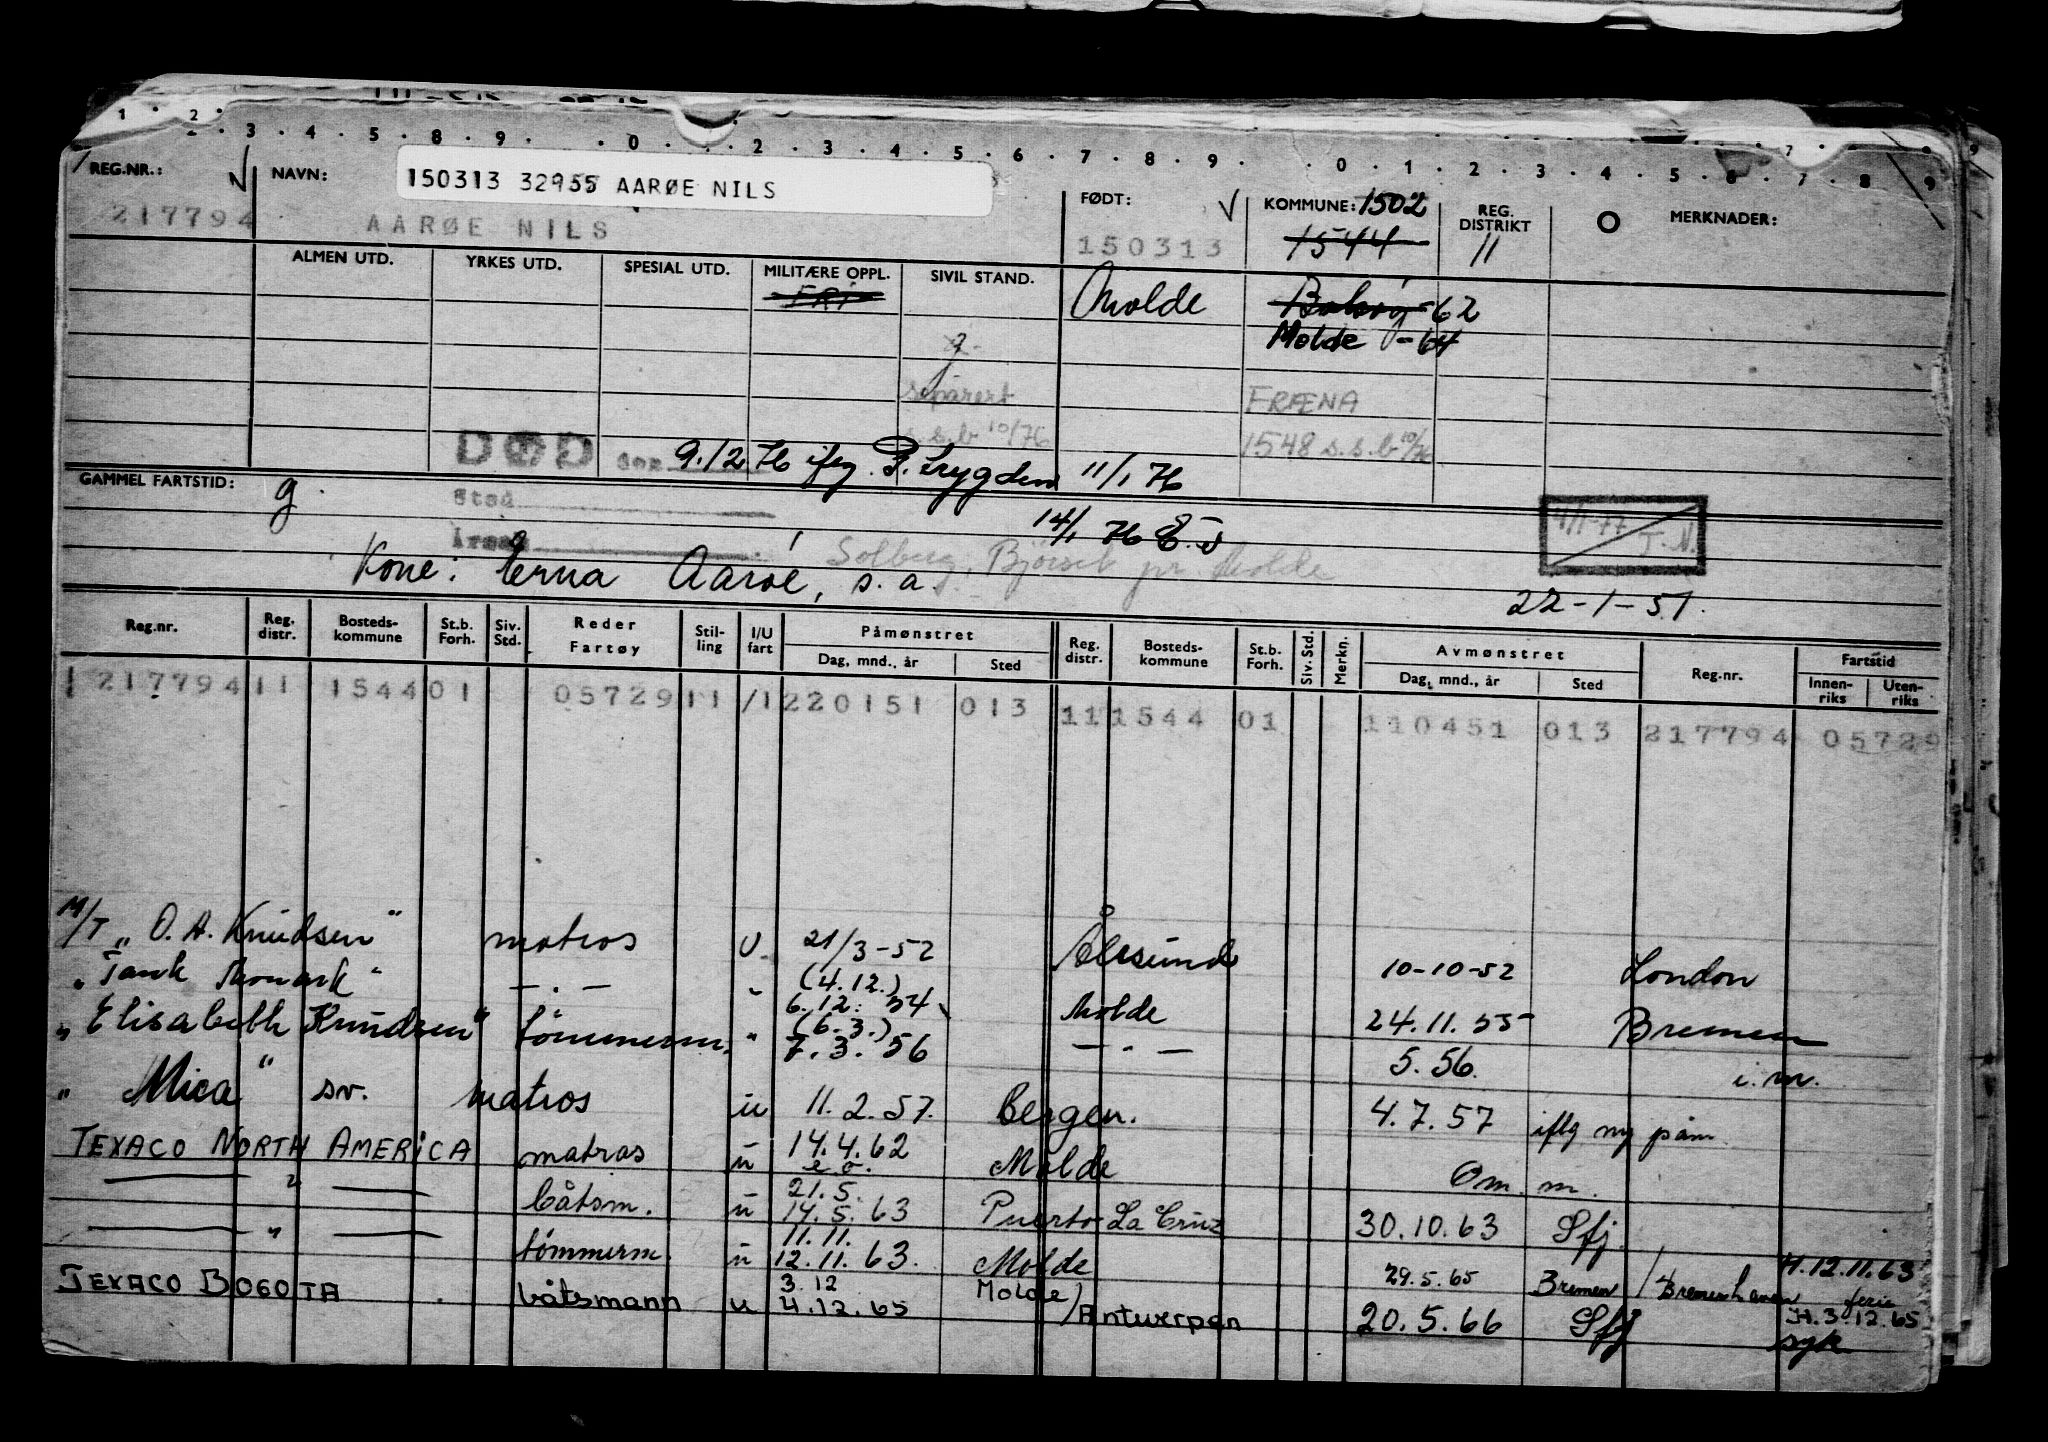 1 · 2 · 3 · 4 · 5 · 8 · 9 · · 0 · · 2 · 3 · 4 · 5 · 6 · 7 · 8 · 9 · · 0 · 1 · 2 · 3 · 4 · 5 · 6 · 7 · 8 · 9
REG.NR.: NAVN: 150313 32955 AARØE NILS FØDT: KOMMUNE: 1502 REG. DISTRIKT MERKNADER:
217794 AARØE NILS 150313 1544 11
ALMEN UTD. YRKES UTD. SPESIAL UTD. MILITÆRE OPPL. SIVIL STAND.
FRI Molde -62
Molde -64
separert FRÆNA
s.s.b 10/76 1548 s.s.b 10/76
DØD 9.12 76 ifg. Trygden 11/1 76
GAMMEL FARTSTID: g Sted
14/1 76
Årsak Solberg, Bjørset pr Molde
Kone: Erna Aarøe, s.a.
22-1-51.
Reg.nr. Reg. distr. Bosteds-kommune St.b. Forh. Siv. Std. Reder Fartøy Stil-ling I/U fart Påmønstret Dag, mnd., år Sted Reg. distr. Bosteds-kommune St.b. Forh. Siv. Std. Merkn. Avmønstret Dag, mnd., år Sted Reg.nr. Fartstid Innen-riks Uten-riks
217794 11 1544 01 05729 11 /1 220151 013 11 1544 01 110451 013 217794 05729
M/T "O. A. Knudsen" matros U. 21/3-52 Ålesund 10-10-52 London
" Tank " — . — " (4.12.) 6.12. 54 Molde 24.11.55 Bremen
" Elisabeth Knudsen" tømmerm. " (6.3.) 7.3.56 — . — 5.56. i.m.
" Mica" sv. matros u 11.2.57. Bergen. 4.7.57 iflg ny påm.
TEXACO NORTH AMERICA matros u 14.4.62 Molde Om. m.
— " — båtsm. u 21.5. 14.5.63 Puerto La Cruz 30.10.63 Sfj.
— " — tømmerm. u 11.11. 12.11.63. Molde 29.5.65 Bremen / Bremerhaven H.12.11.63 ferie
TEXACO BOGOTA båtsmann u 3.12 4.12.65 Molde / Antwerpen 20.5.66 Sfj H.3.12.65 syk